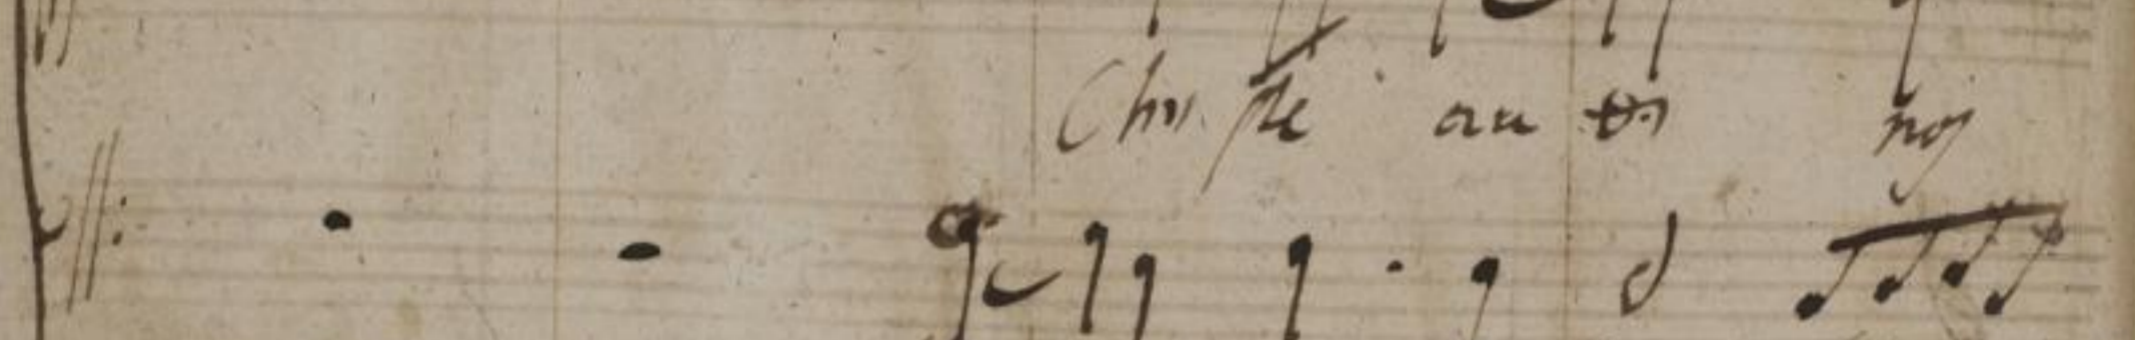 Chri ste au di nos